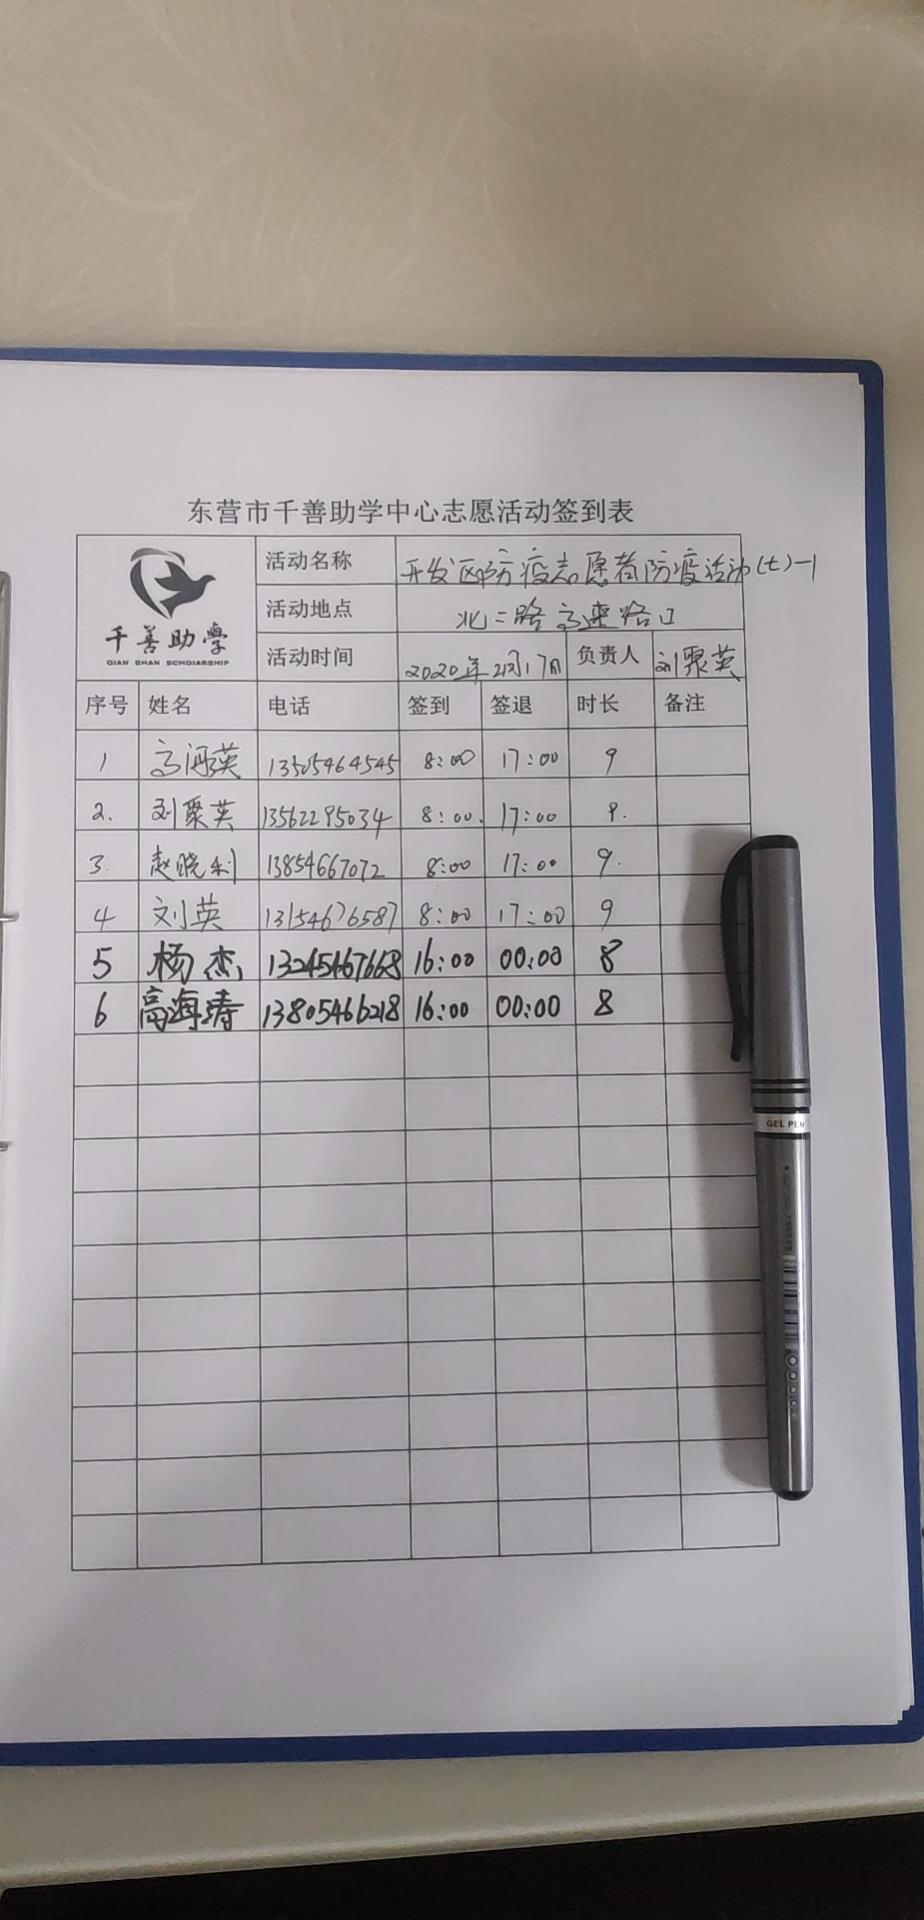 东营市千善助学中心志愿活动签到表
千善助学
QIAN SHAN SCHOLARSHIP
活动名称 开发区防疫志愿者防疫活动(七)-1
活动地点 北二路高速路口
活动时间 2020年2月17日 负责人 刘聚英
序号 姓名 电话 签到 签退 时长 备注
1 高 英 13505464545 8:00 17:00 9
2. 刘聚英 13562295034 8:00. 17:00 9.
3. 赵晓利 13854667072 8:00 17:00 9.
4 刘英 13154676587 8:00 17:00 9
5 杨杰 13245467668 16:00 00:00 8
6 高海涛 13805466218 16:00 00:00 8
GEL PEN